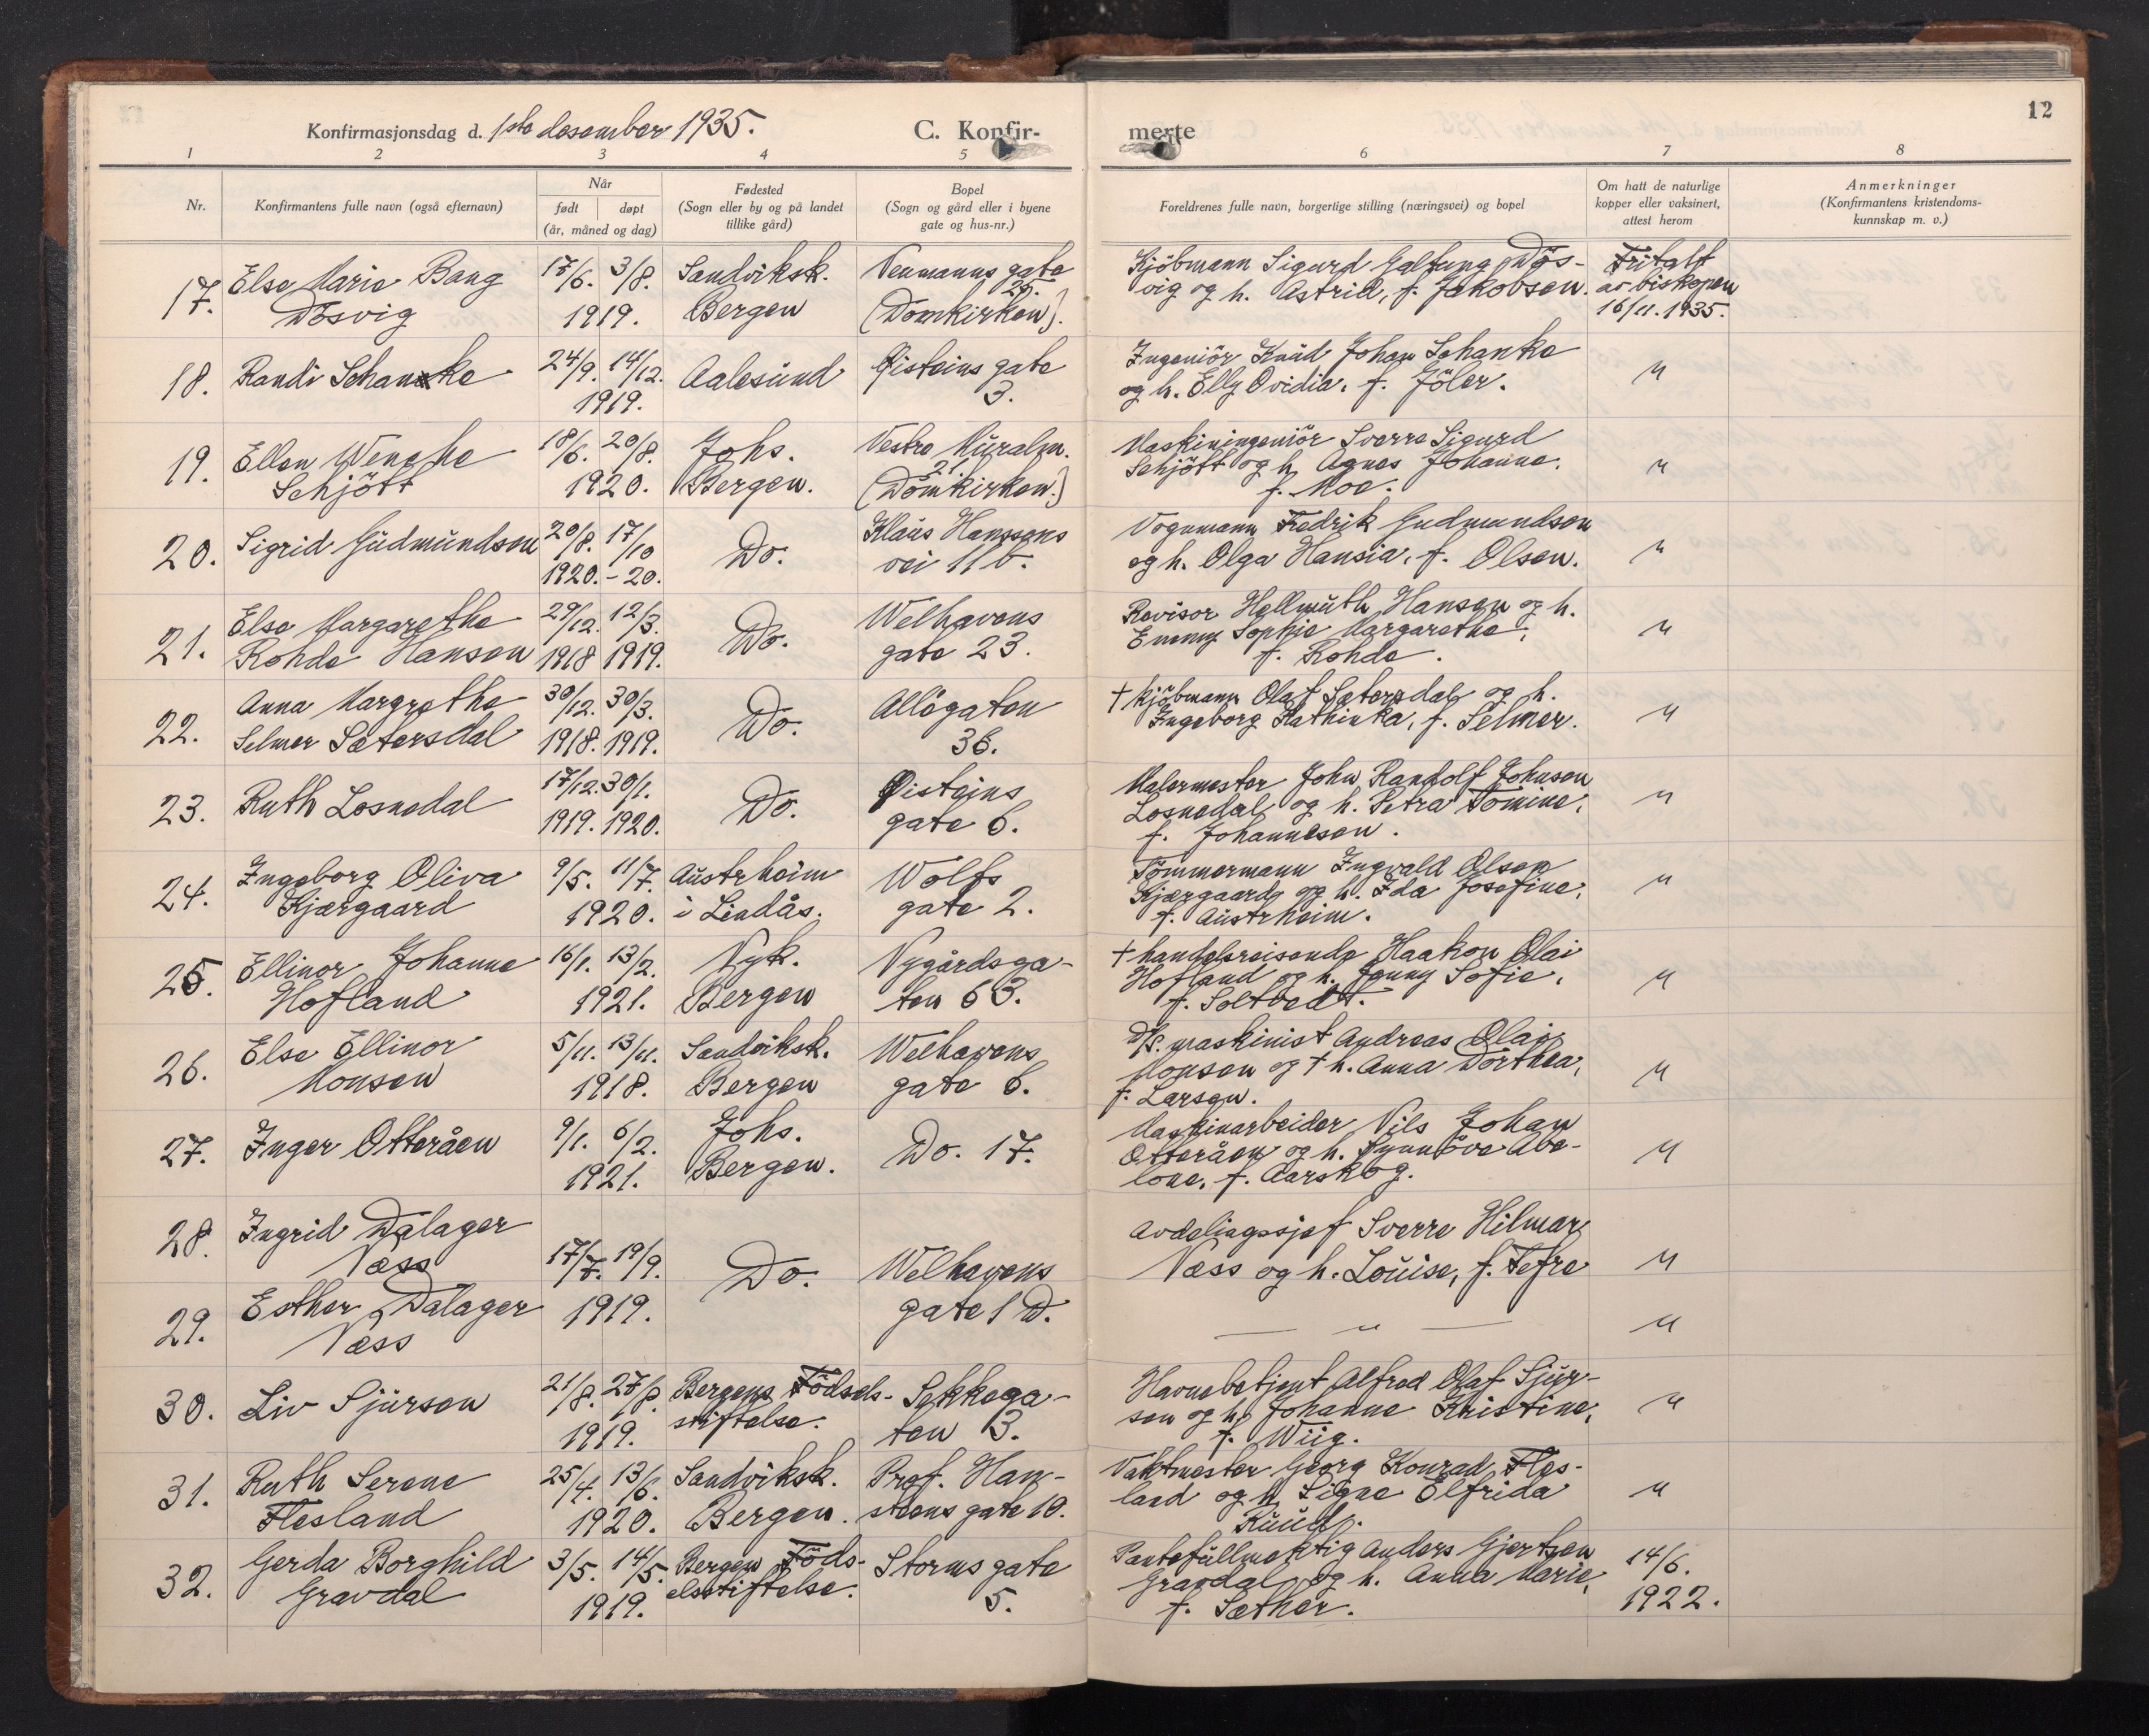 12
Konfirmasjonsdag d. 1ste desember 1935. C. Konfir- merte
1 2 3 4 5 6 7 8
Nr.
Konfirmantens fulle navn (også efternavn)
Når
født døpt
(år, måned og dag)
Fødested
(Sogn eller by og på landet
tillike gård)
Bopel
(Sogn og gård eller i byene
gate og hus-nr.)
Foreldrenes fulle navn, borgertige stilling (næringsvei) og bopel
Om hatt de naturlige
kopper eller vaksinert,
attest herom
Anmerkninger
(Konfirmantens kristendoms-
kunnskap m. v.)
17. Else Marie Bang
Døsvig
17/6. 3/8.
1919.
Sandviksk.
Bergen
Neumanns gate
25.
(Domkirken).
Kjöbmann Sigurd Galtung Døs-
vig og h. Astrid, f. Jakobsen.
Fritatt
av biskopen
16/11. 1935.
18. Randi Schanke
24/9. 14/12.
1919.
Aalesund
Øisteins gate
3.
Ingeniör Knud Johan Schanke
og h. Elly Ovidia, f. Jöler.
"
19. Ellen Wenche
Schjött
18/6. 20/8.
1920.
Johs.
Bergen.
Vestre Muralm.
21.
(Domkirken.)
Maskiningeniör Sverre Sigurd
Schjött og h. Agnes Johanne,
f. Moe.
"
20. Sigrid Gudmundson
20/8. 17/10
1920. - 20.
Do.
Klaus Hanssens
vei 11 b.
Vognmann Fredrik Gudmundson
og h. Olga Hansia, f. Olsen.
"
21. Else Margarethe
Rohde Hansen
29/12. 12/3.
1918 1919.
Do.
Welhavens
gate 23.
Revisor Hellmuth Hansen og h.
Emmy Sophie Margarethe,
f. Rohde.
"
22. Anna Margrethe
Selmer Sætersdal
30/12. 30/3.
1918. 1919.
Do.
Allégaten
36.
† Kjöbmann Olaf Sætersdal og h.
Ingeborg Kathinka, f. Selmer.
"
23. Ruth Losnedal
17/12. 30/1.
1919. 1920.
Do.
Øisteins
gate 6.
Malermester John Randolf Johnson
Losnedal og h. Petra Tomine,
f. Johannesen.
"
24. Ingeborg Oliva
Kjærgaard
9/5. 11/7.
1920.
Austrheim
i Lindås.
Wolfs
gate 2.
Tömmermann Ingvald Olsen
Kjærgaard og h. Ida Josefine,
f. Austrheim.
"
25. Ellinor Johanne
Hofland
16/1. 13/2.
1921.
Nyk.
Bergen
Nygårdsga-
ten 63.
† handelsreisende Haakon Olai
Hofland og h. Jenny Sofie,
f. Soltvedt.
"
26. Else Ellinor
Monsen
5/11. 13/11.
1918.
Sandviksk.
Bergen
Welhavens
gate 6.
D/S. maskinist Andreas Olai
Monsen og † h. Anna Dorthea,
f. Larsen.
"
27. Inger Otteråen
9/1. 6/2.
1921.
Johs.
Bergen.
Do. 17.
Maskinarbeider Nils Johan
Otteråen og h. Synnöve Abe-
lone, f. Aarskog.
"
28. Ingrid Dalager
Næss
17/7. 19/9.
1919.
Do.
Welhavens
gate 1 D.
Avdelingssjef Sverre Hilmar
Næss og h. Louise, f. Tefre
"
29. Esther Dalager
Næss
— " —
"
30. Liv Sjursen
21/8. 27/8.
1919.
Bergens Födsels-
stiftelse.
Sekkega-
ten 3.
Havnebetjent Alfred Olaf Sjur-
sen og h. Johanne Kristine,
f. Wiig.
"
31. Ruth Serene
Flesland
25/4. 13/6.
1920.
Sandviksk.
Bergen.
Prof. Han-
steens gate 10.
Vaktmester Georg Konrad Fles-
land og h. Signe Elfrida
Ruud.
"
32. Gerda Borghild
Gravdal
3/5. 14/5.
1919.
Bergen Föds-
elsstiftelse.
Storms gate
5.
Pantefullmektig Anders Gjertsen
Gravdal og h. Anna Marie,
f. Sæther.
14/6.
1922.